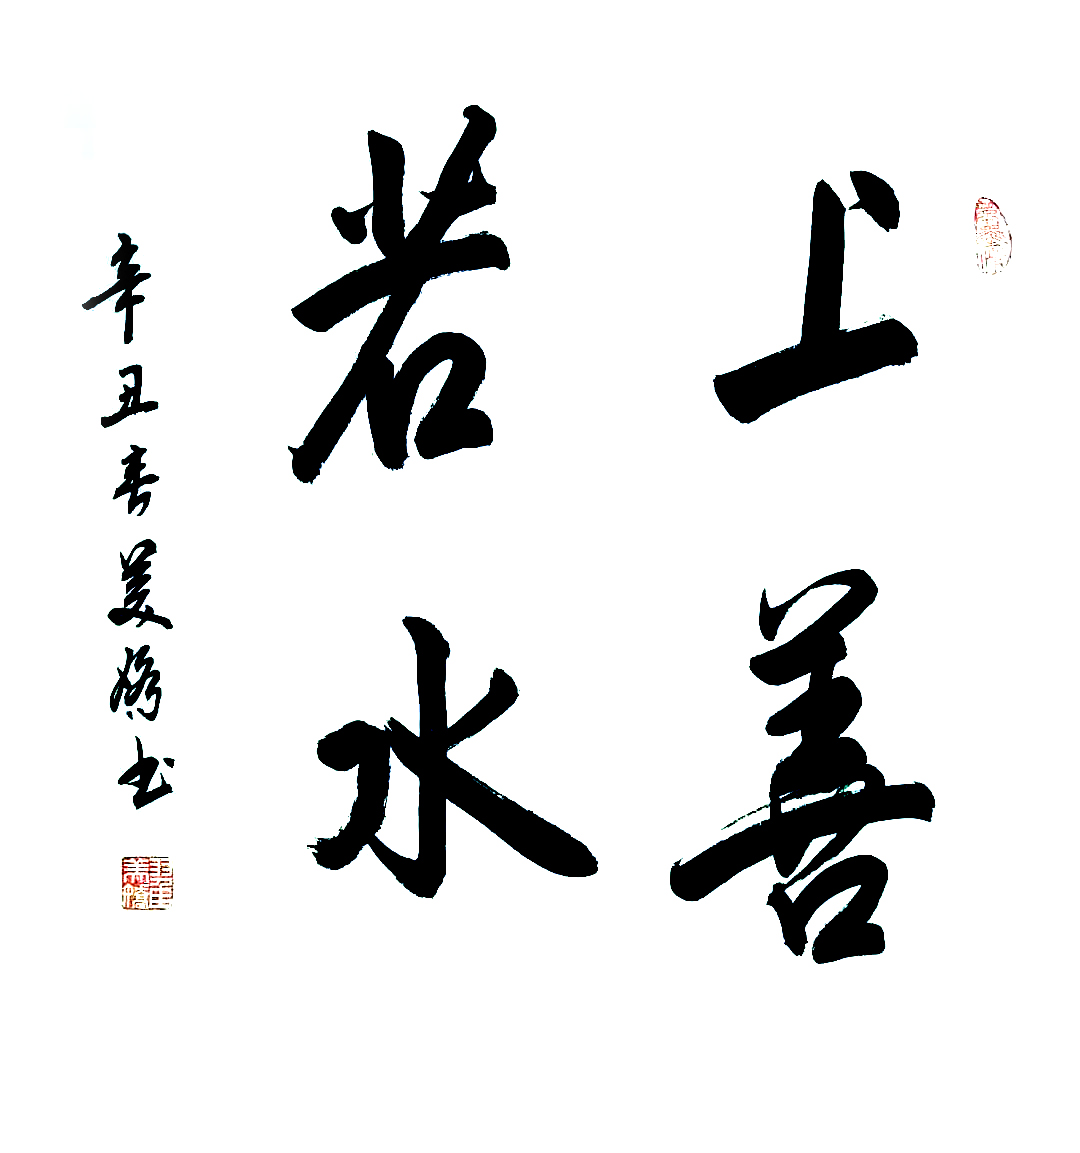 上善
若水
辛丑春美嬌书